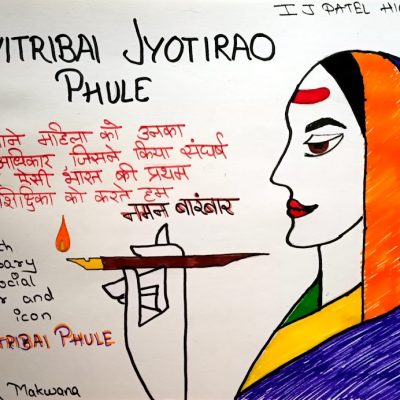 I J PATEL HI
VITRIBAI JYOTIRAO
PHULE
ाने महिला को उनका
अधिकार जिसने किया संघर्ष
ऐसी भारत की प्रथम
शिक्षिका को करते हम
नमन बारंबार
th
ary
ocial
r and
icon
TRIBAI PHULE
Makwana